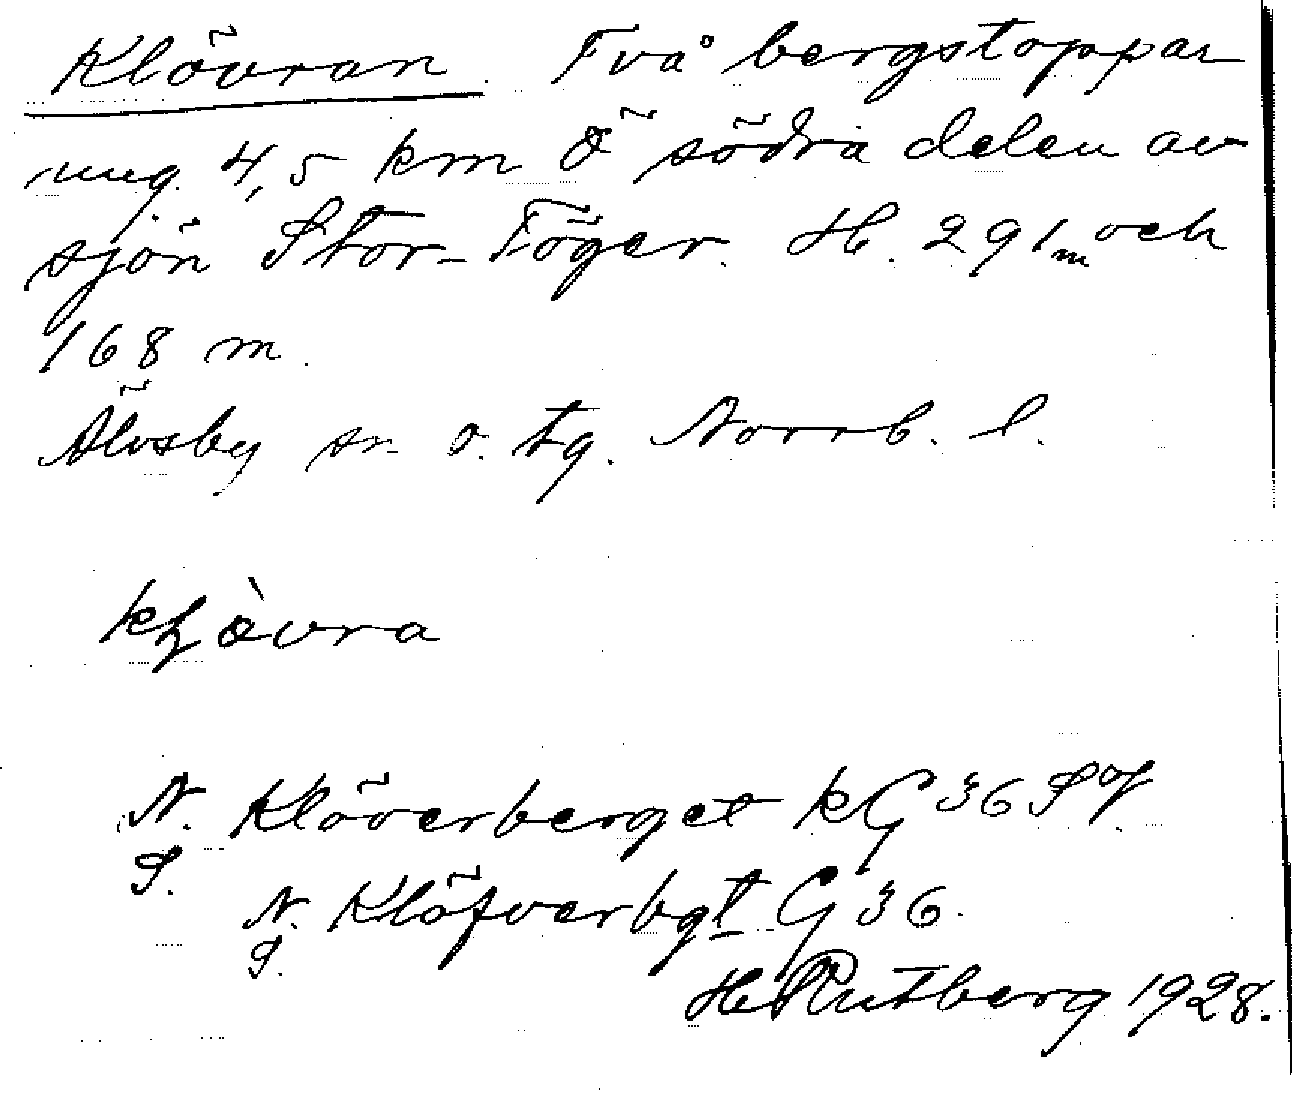 Klövran. Två bergstoppar
ung. 4,5 km Ö södra delen av
sjön Stor-Töger. H. 291 m och
168 m.
Älvsby sn. o. tg. Norrb. l.
kḷævra
N. Klöverberget kG 36
S.
N. Klöfverbgt G 36.
S.
H Rutberg 1928.